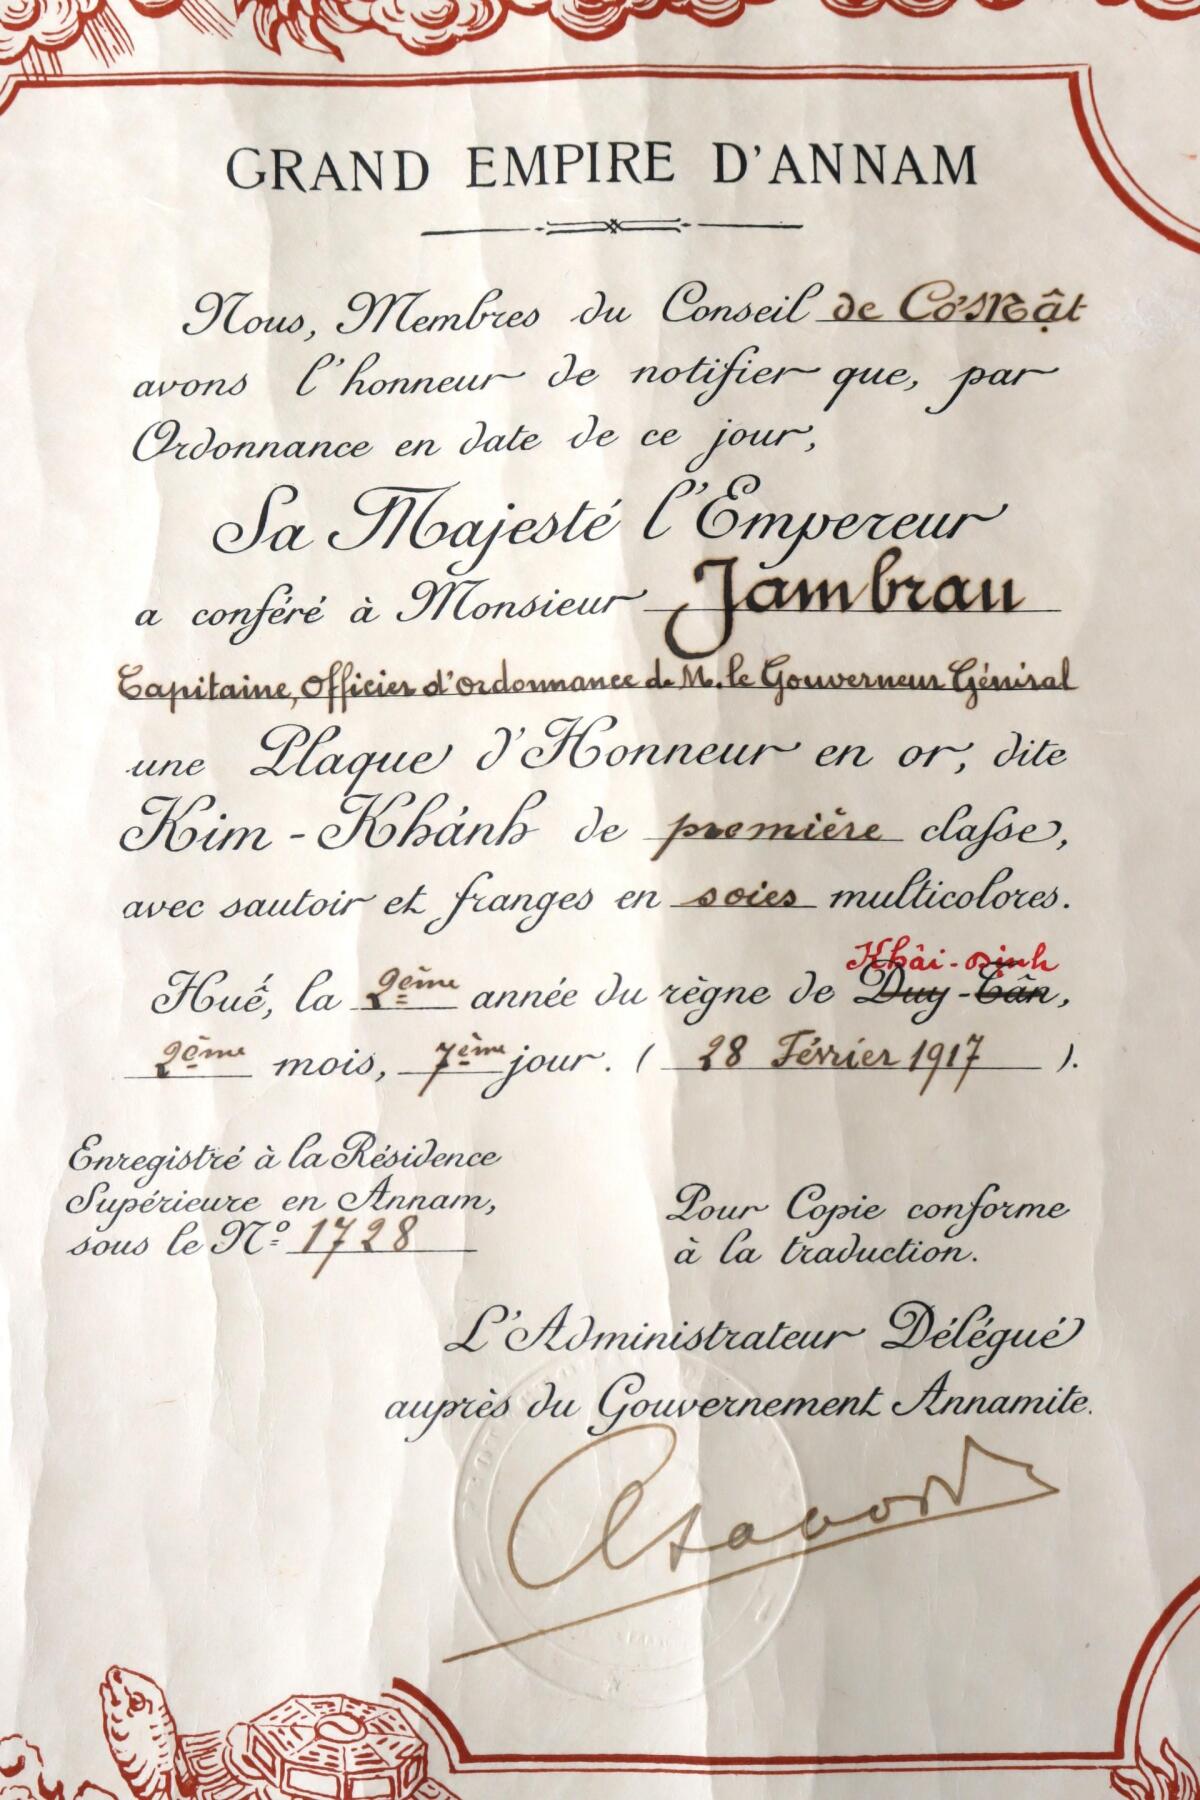 GRAND EMPIRE D'ANNAM
Nous, Membres du Conseil de Cơ Mật
avons l'honneur de notifier que, par
Ordonnance en date de ce jour,
Sa Majesté l'Empereur
a conféré à Monsieur Jambrau
Capitaine, Officier d'Ordonnance de M. le Gouverneur Général
une Plaque d'Honneur en or, dite
Kim-Khánh de première classe,
avec sautoir et franges en soies multicolores.
Khâi-dinh
Huế, la 2ème année du règne de Duy-Cân,
2ème mois, 7ème jour. ( 28 Février 1917 ).
Enregistré à la Résidence
Supérieure en Annam,
sous le No 1728
Pour Copie conforme
à la traduction.
L'Administrateur Délégué
auprès du Gouvernement Annamite.